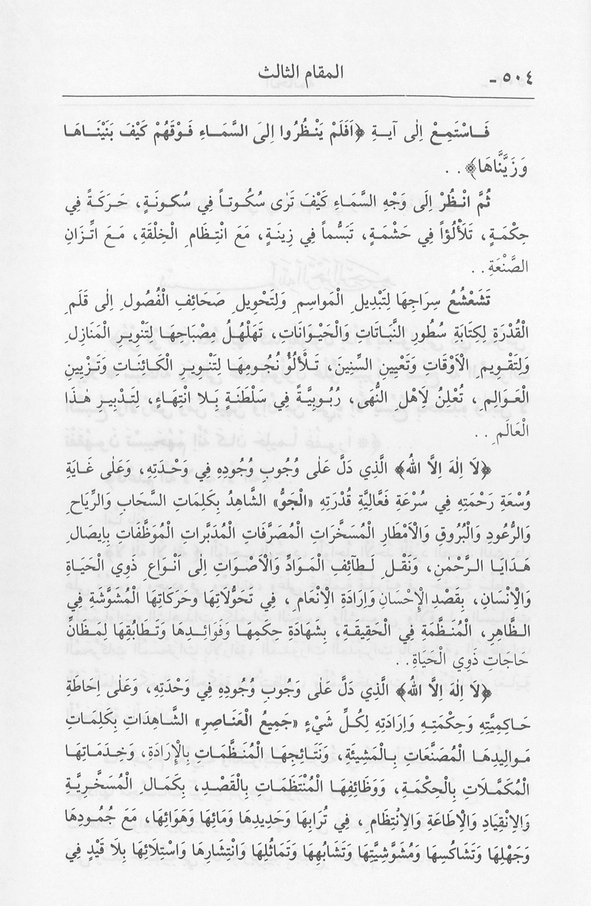 ٥٠٤ - المقام الثالث
فَاسْتَمِعْ اِلٰى آيَةِ ﴿اَفَلَمْ يَنْظُرُوا اِلَى السَّمَاءِ فَوْقَهُمْ كَيْفَ بَنَيْنَاهَا
وَزَيَّنَّاهَا﴾. .
ثُمَّ انْظُرْ اِلَى وَجْهِ السَّمَاءِ كَيْفَ تَرٰى سُكُوتاً فِي سُكُونَةٍ، حَرَكَةً فِي
حِكْمَةٍ، تَلَأْلُؤاً فِي حَشْمَةٍ، تَبَسُّماً فِي زِينَةٍ، مَعَ انْتِظَامِ الْخِلْقَةِ، مَعَ اتِّزَانِ
الصَّنْعَةِ. .
تَشَعْشُعُ سِرَاجِهَا لِتَبْدِيلِ الْمَوَاسِمِ وَلِتَحْوِيلِ صَحَائِفِ الْفُصُولِ اِلٰى قَلَمِ
الْقُدْرَةِ لِكِتَابَةِ سُطُورِ النَّبَاتَاتِ وَالْحَيْوَانَاتِ، تَهَلْهُلُ مِصْبَاحِهَا لِتَنْوِيرِ الْمَنَازِلِ
وَلِتَقْوِيمِ الْاَوْقَاتِ وَتَعْيِينِ السِّنِينَ، تَلَأْلُؤُ نُجُومِهَا لِتَنْوِيرِ الْكَائِنَاتِ وَتَزْيِينِ
الْعَوَالِمِ، تُعْلِنُ لِاَهْلِ النُّهَى، رُبُوبِيَّةً فِي سَلْطَنَةٍ بِلَا انْتِهَاءٍ، لِتَدْبِيرِ هٰذَا
الْعَالَمِ. .
﴿لَا اِلٰهَ اِلَّا اللهُ﴾ الَّذِي دَلَّ عَلٰى وُجُوبِ وُجُودِهِ فِي وَحْدَتِهِ، وَعَلٰى غَايَةِ
وُسْعَةِ رَحْمَتِهِ فِي سُرْعَةِ فَعَّالِيَّةِ قُدْرَتِهِ «الْجَوُّ» الشَّاهِدُ بِكَلِمَاتِ السَّحَابِ وَالرِّيَاحِ
وَالرُّعُودِ وَالْبُرُوقِ وَالْاَمْطَارِ الْمُسَخَّرَاتِ الْمُصَرَّفَاتِ الْمُدَبَّرَاتِ الْمُوَظَّفَاتِ بِاِيصَالِ
هَدَايَا الرَّحْمٰنِ، وَنَقْلِ لَطَائِفِ الْمَوَادِّ وَالْاَصْوَاتِ اِلٰى اَنْوَاعِ ذَوِي الْحَيَاةِ
وَالْاِنْسَانِ، بِقَصْدِ الْاِحْسَانِ وَاِرَادَةِ الْاِنْعَامِ، فِي تَحَوُّلَاتِهَا وَحَرَكَاتِهَا الْمُشَوَّشَةِ فِي
الظَّاهِرِ، الْمُنَظَّمَةِ فِي الْحَقِيقَةِ، بِشَهَادَةِ حِكَمِهَا وَفَوَائِدِهَا وَتَطَابُقِهَا لِمَظَانِّ
حَاجَاتِ ذَوِي الْحَيَاةِ. .
﴿لَا اِلٰهَ اِلَّا اللهُ﴾ الَّذِي دَلَّ عَلٰى وُجُوبِ وُجُودِهِ فِي وَحْدَتِهِ، وَعَلٰى اِحَاطَةِ
حَاكِمِيَّتِهِ وَحِكْمَتِهِ وَاِرَادَتِهِ لِكُلِّ شَيْءٍ «جَمِيعُ الْعَنَاصِرِ» الشَّاهِدَاتِ بِكَلِمَاتِ
مَوَالِيدِهَا الْمُصَنَّعَاتِ بِالْمَشِيئَةِ، وَنَتَائِجِهَا الْمُنَظَّمَاتِ بِالْاِرَادَةِ، وَخِدَمَاتِهَا
الْمُكَمَّلَاتِ بِالْحِكْمَةِ، وَوَظَائِفِهَا الْمُنْتَظَمَاتِ بِالْقَصْدِ، بِكَمَالِ الْمُسَخَّرِيَّةِ
وَالْاِنْقِيَادِ وَالْاِطَاعَةِ وَالْاِنْتِظَامِ، فِي تُرَابِهَا وَحَدِيدِهَا وَمَائِهَا وَهَوَائِهَا، مَعَ جُمُودِهَا
وَجَهْلِهَا وَتَشَاكُسِهَا وَمُشَوَّشِيَّتِهَا وَتَشَابُهِهَا وَتَمَاثُلِهَا وَانْتِشَارِهَا وَاسْتِلَائِهَا بِلَا قَيْدٍ فِي